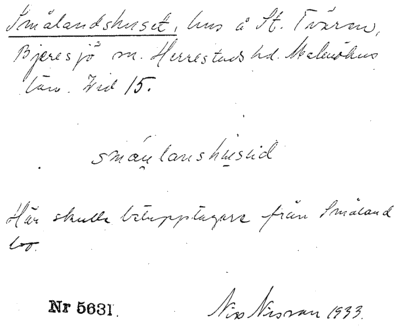 Smålandshuset, hus å St. Tvären,
Bjeresjö sn. Herrestads hd. Malmöhus
län. Vid 15.
smånlanshusid
Här skulle betupptagare från Småland
bo.
Nr 5631.
Nils Nilsson 1933.